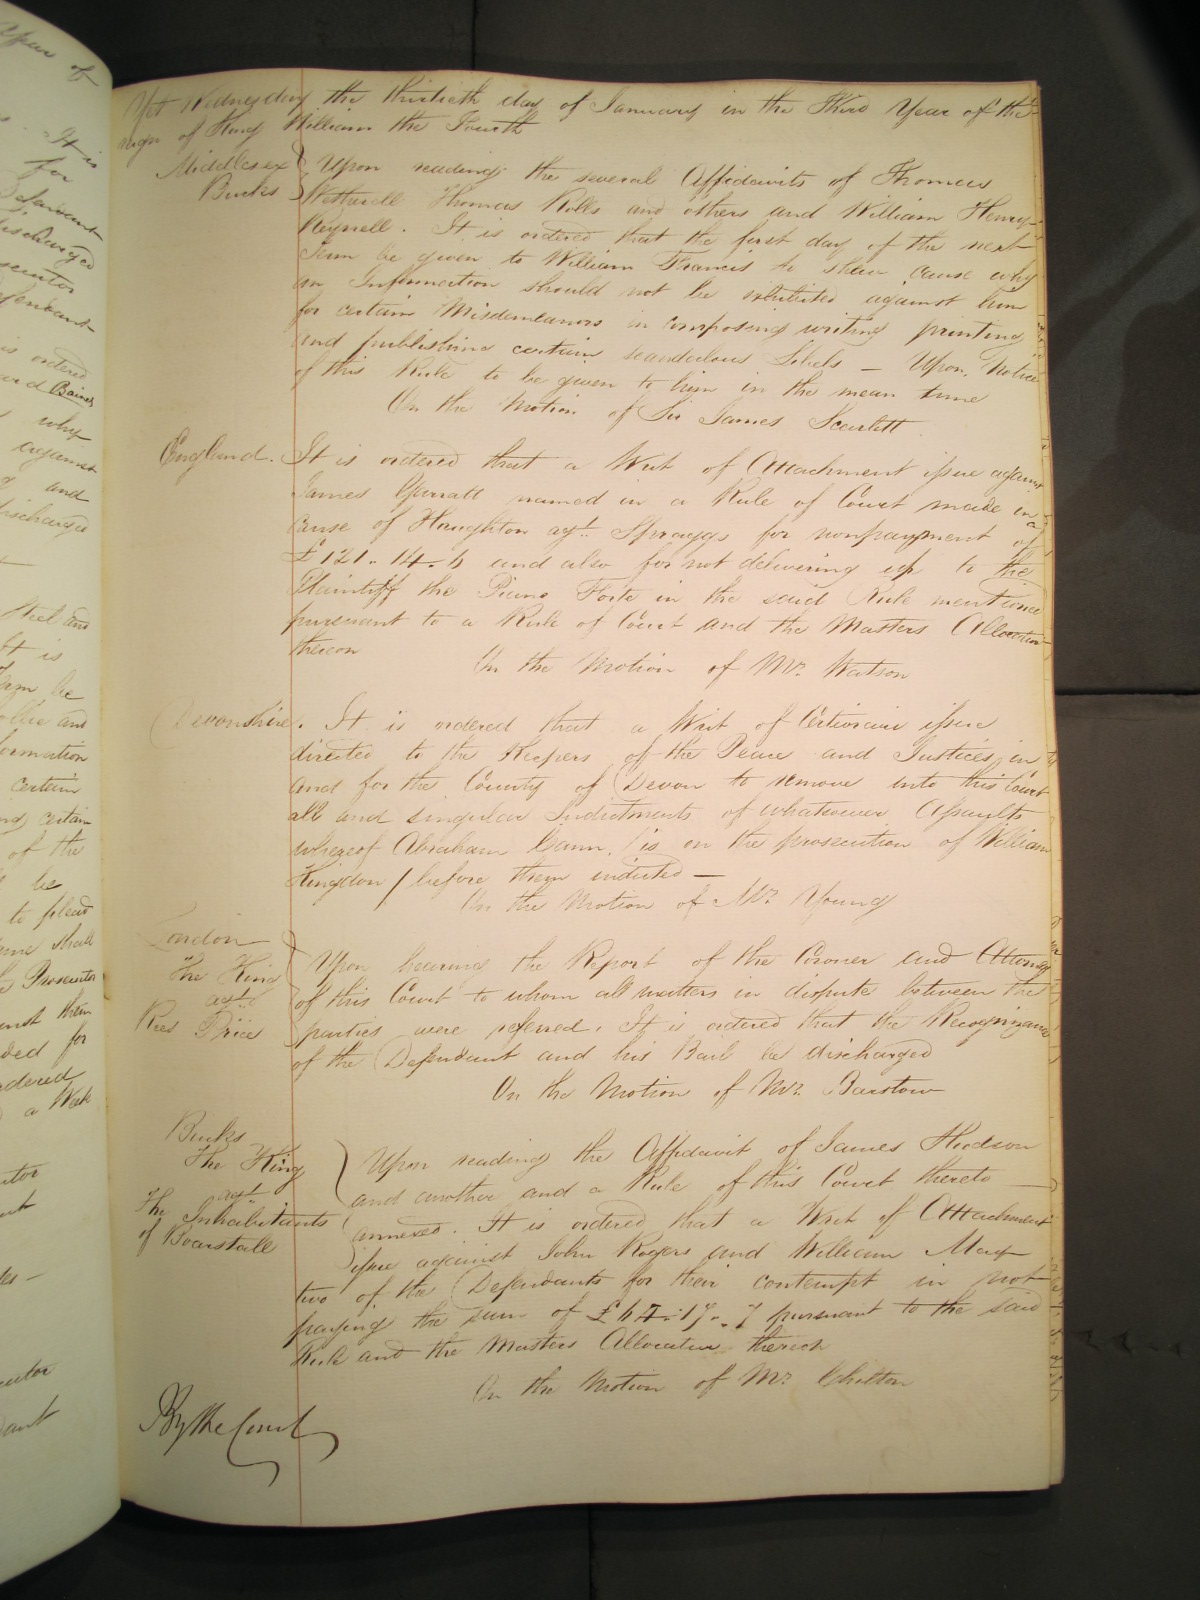 Yet Wednesday the thirtieth day of January in the Third Year of the
reign of King William the Fourth
Middlesex
Bucks
Upon reading the several Affidavits of Thomas
Wetherell Thomas Rolls and others and William Henry
Reynell. It is ordered that the first day of the next
Term be given to William Francis to shew cause why
an Information should not be exhibited against him
for certain Misdemeanors in composing writing printing
and publishing certain scandalous Libels — Upon Notice
of this Rule to be given to him in the mean time
On the Motion of Sir James Scarlett
England.
It is ordered that a Writ of Attachment issue against
James Garratt named in a Rule of Court made in a
cause of Houghton agt. Spraggs for nonpayment of
£121.. 14.. 6 and also for not delivering up to the
Plaintiff the Piano Forte in the said Rule mentioned
pursuant to a Rule of Court and the Masters Allocatur
thereon
On the Motion of Mr. Watson
Devonshire.
It is ordered that a Writ of Certiorari issue
directed to the Keepers of the Peace and Justices in
and for the County of Devon to remove into this Court
all and singular Indictments of whatsoever Assaults
whereof Abraham Cann / is on the prosecution of William
Kingdon / before them indicted —
On the Motion of Mr. Young
London
The King
agt.
Rees Price
Upon hearing the Report of the Coroner and Attorney
of this Court to whom all matters in dispute between the
parties were referred. It is ordered that the Recognizance
of the Defendant and his Bail be discharged
On the Motion of Mr. Barstow
Bucks
The King
agt.
The Inhabitants
of Boarstall
Upon reading the Affidavit of James Hudson
and another and a Rule of this Court thereto
annexed. It is ordered that a Writ of Attachment
issue against John Rogers and William May
two of the Defendants for their contempt in not
paying the sum of £64.. 17.. 7 pursuant to the said
Rule and the Masters Allocatur thereon
On the Motion of Mr. Chilton
By the Court